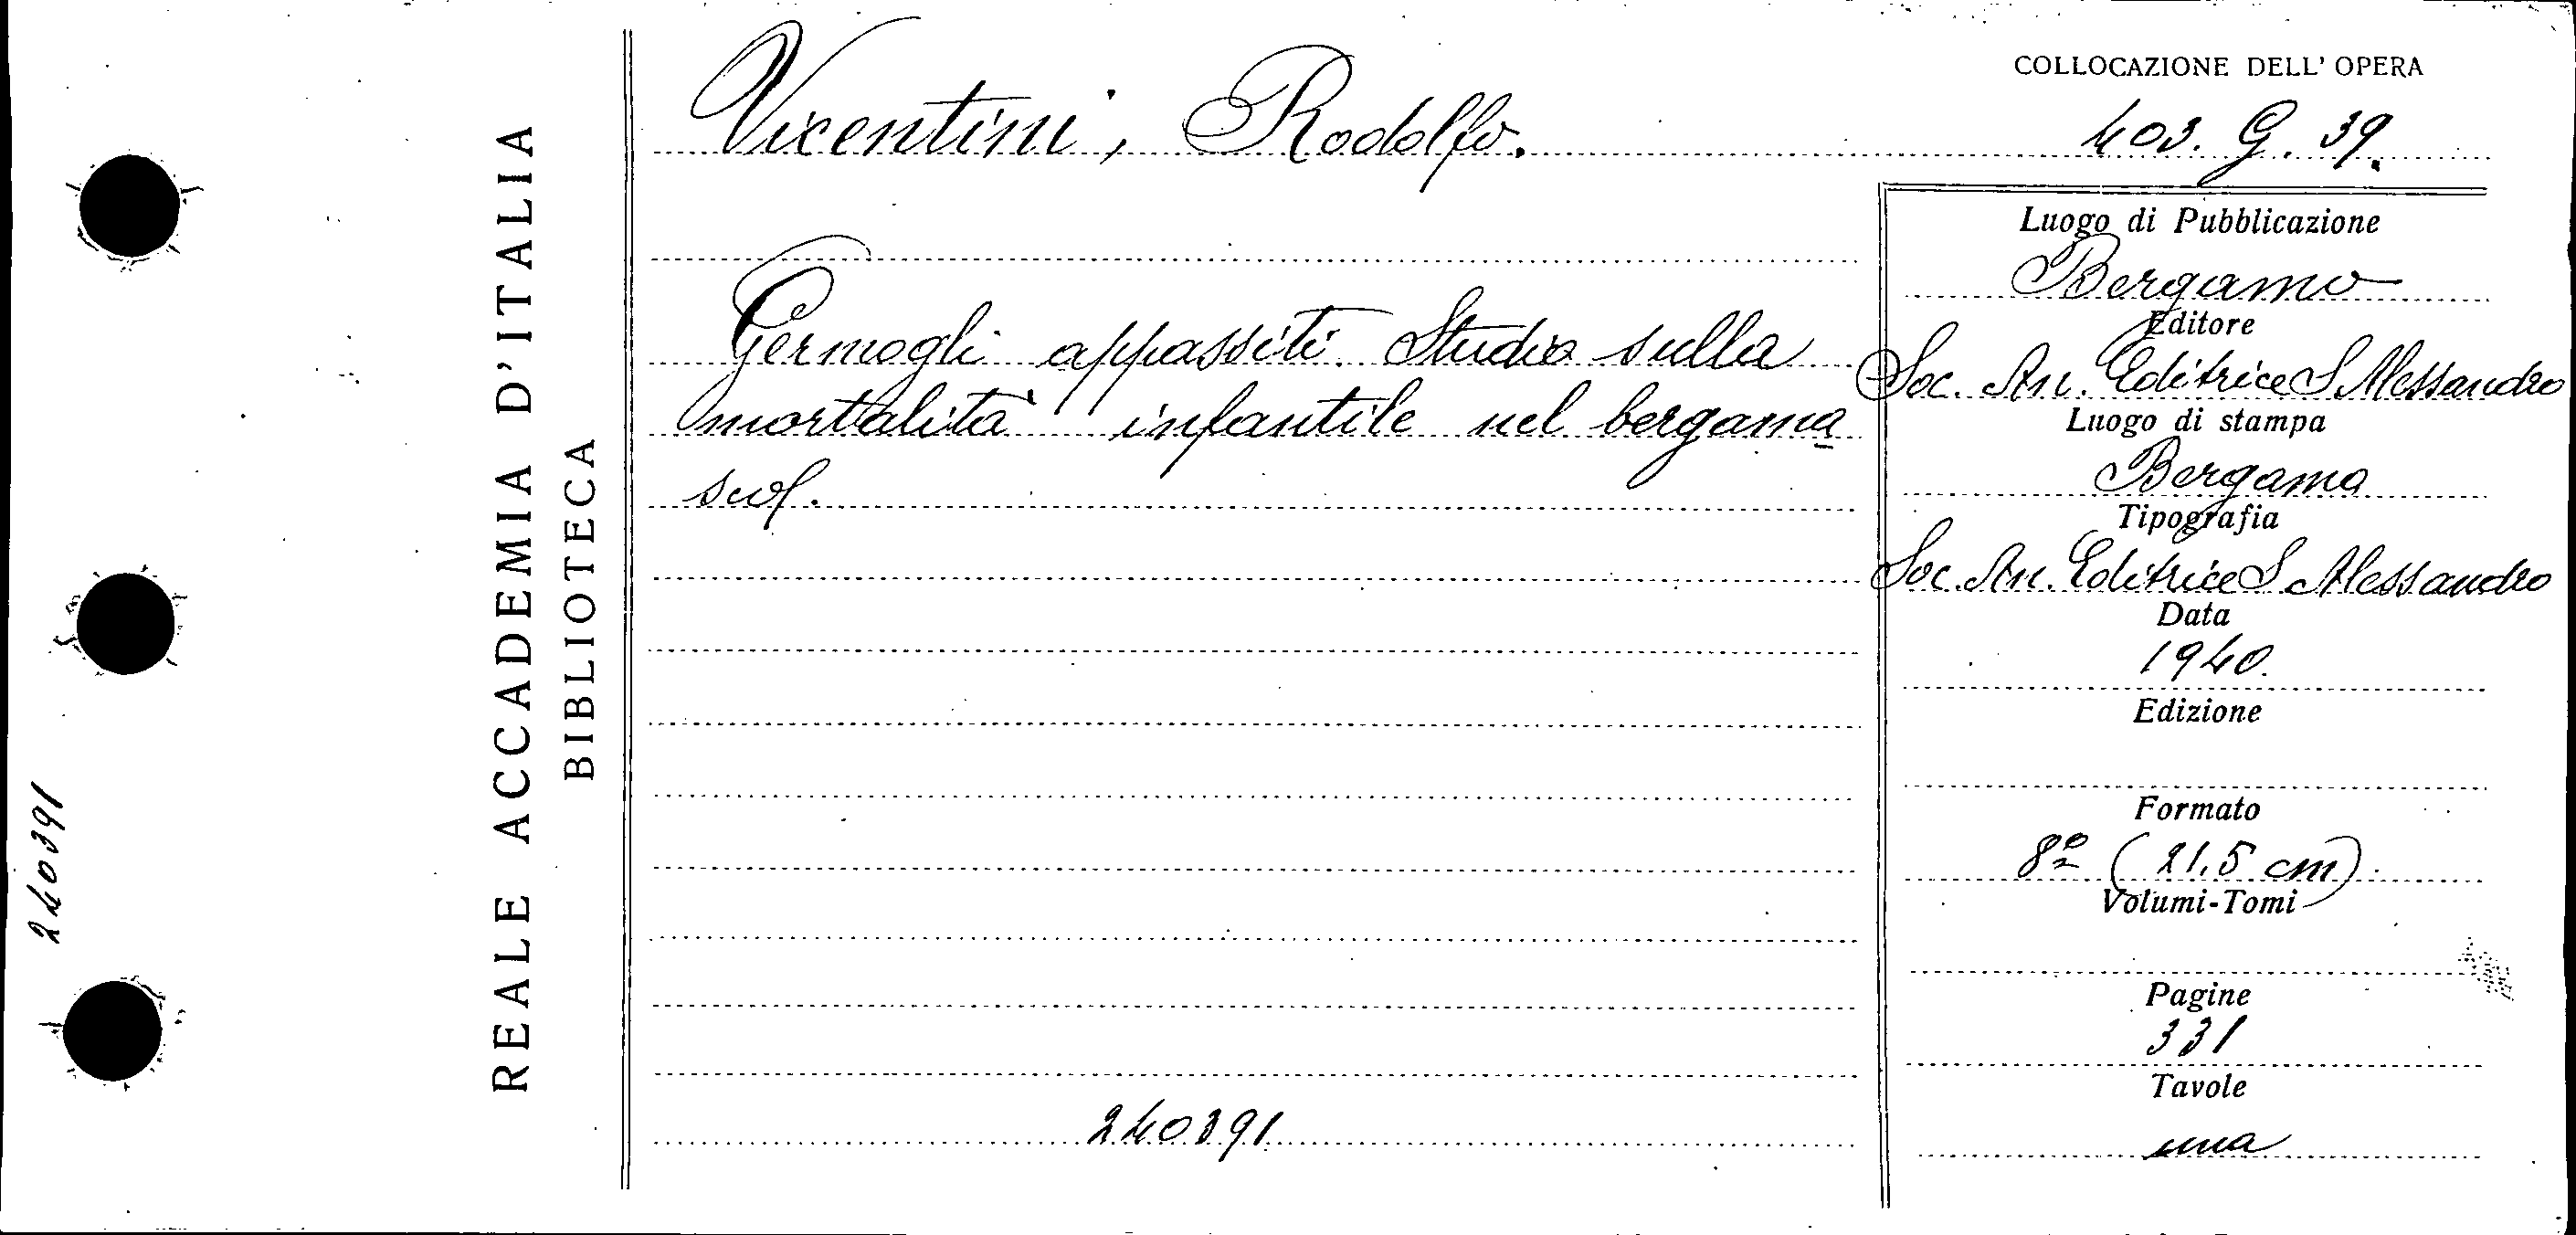 Vicentini, Rodolfo.
COLLOCAZIONE DELL' OPERA
403. G. 39.
REALE ACCADEMIA D'ITALIA
BIBLIOTECA
240391
Germogli appassiti. Studio sulla
mortalità infantile nel bergama
scol.
240391
Luogo di Pubblicazione
Bergamo
Editore
Soc. An. Editrice S. Alessandro
Luogo di stampa
Bergamo
Tipografia
Soc. An. Editrice S. Alessandro
Data
1940.
Edizione
Formato
8º (21.5 cm)
Volumi-Tomi
Pagine
331
Tavole
una